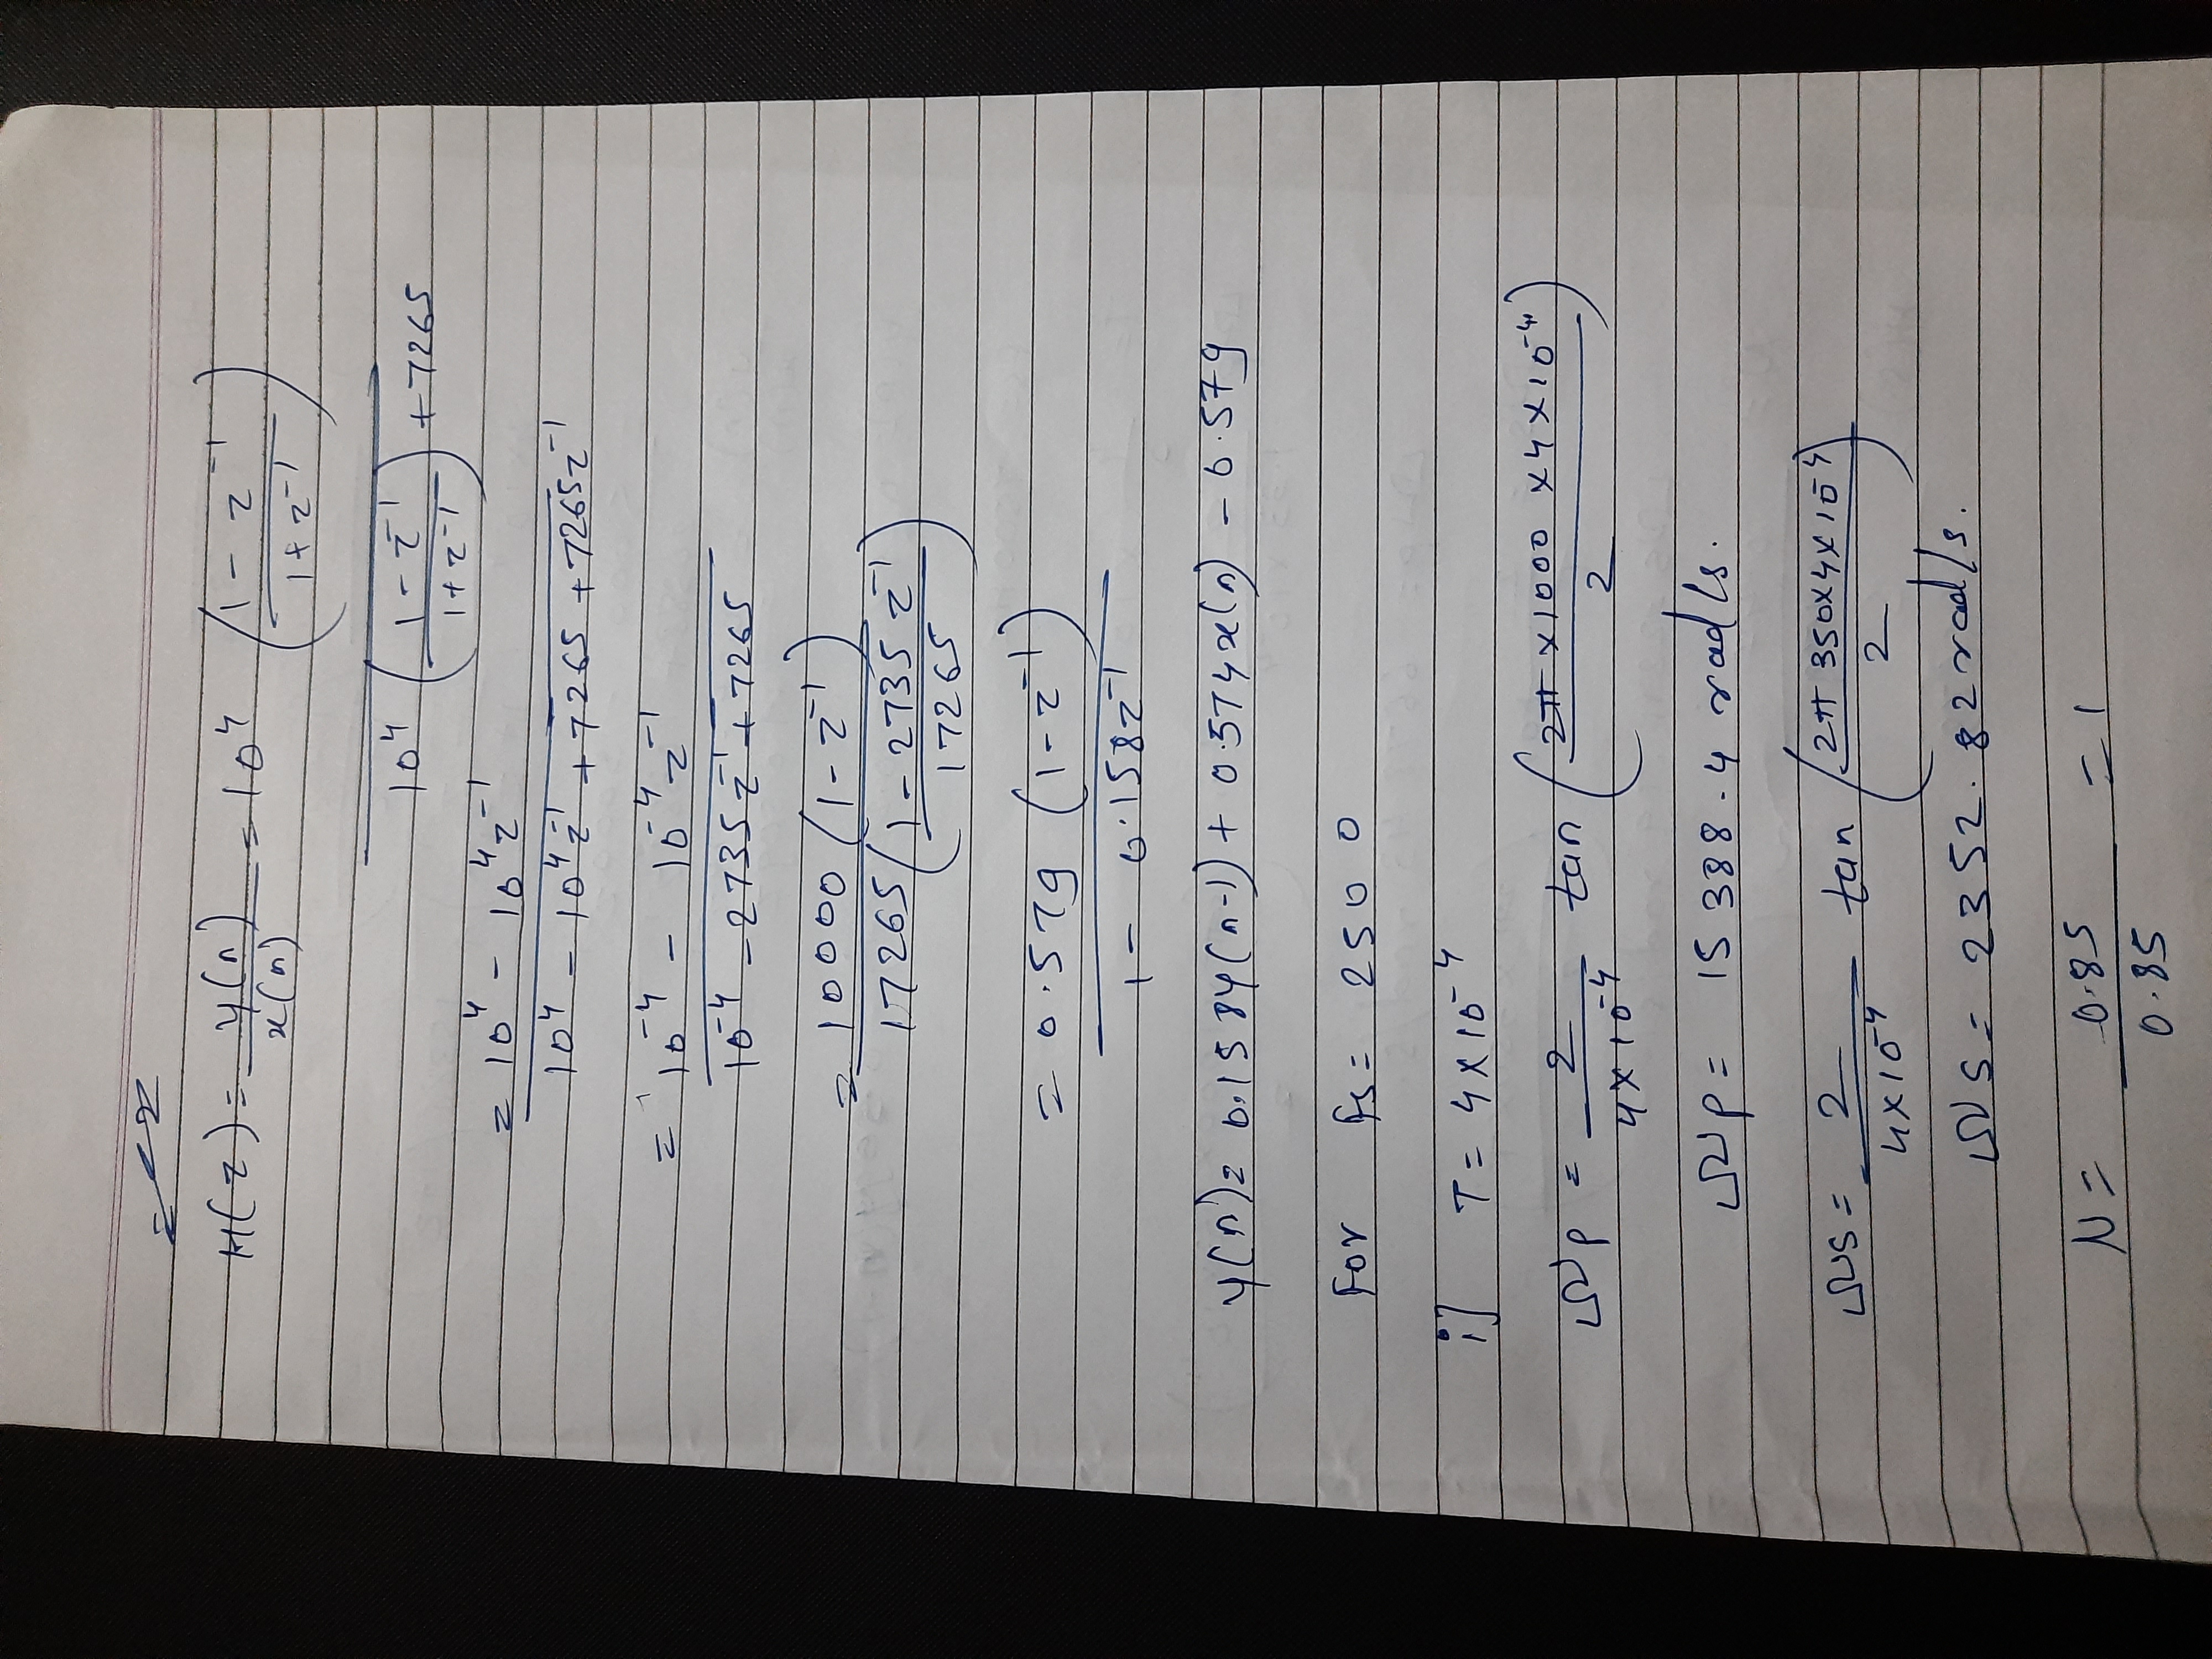 H(z) = y(n) / x(n) = 10^4 ( 1 - z^-1 / 1 + z^-1 )
10^4 ( 1 - z^-1 / 1 + z^-1 ) + 7265
= 10^4 - 10^4 z^-1
10^4 - 10^4 z^-1 + 7265 + 7265 z^-1
= 10^-4 - 10^-4 z^-1
10^-4 - 2735 z^-1 + 7265
= 10000 ( 1 - z^-1 )
17265 ( 1 - 2735 z^-1 / 17265 )
= 0.579 ( 1 - z^-1 )
1 - 0.158 z^-1
y(n) = 0.158y(n-1) + 0.574x(n) - 0.579
For fs = 2500
i] T = 4 × 10^-4
Ωp = 2 / 4×10^-4 tan ( 2π × 1000 × 4 × 10^-4 / 2 )
Ωp = 15388.4 rad/s.
Ωs = 2 / 4×10^-4 tan ( 2π 350×4×10^-4 / 2 )
Ωs = 2352.82 rad/s.
N = 0.85 / 0.85 = 1